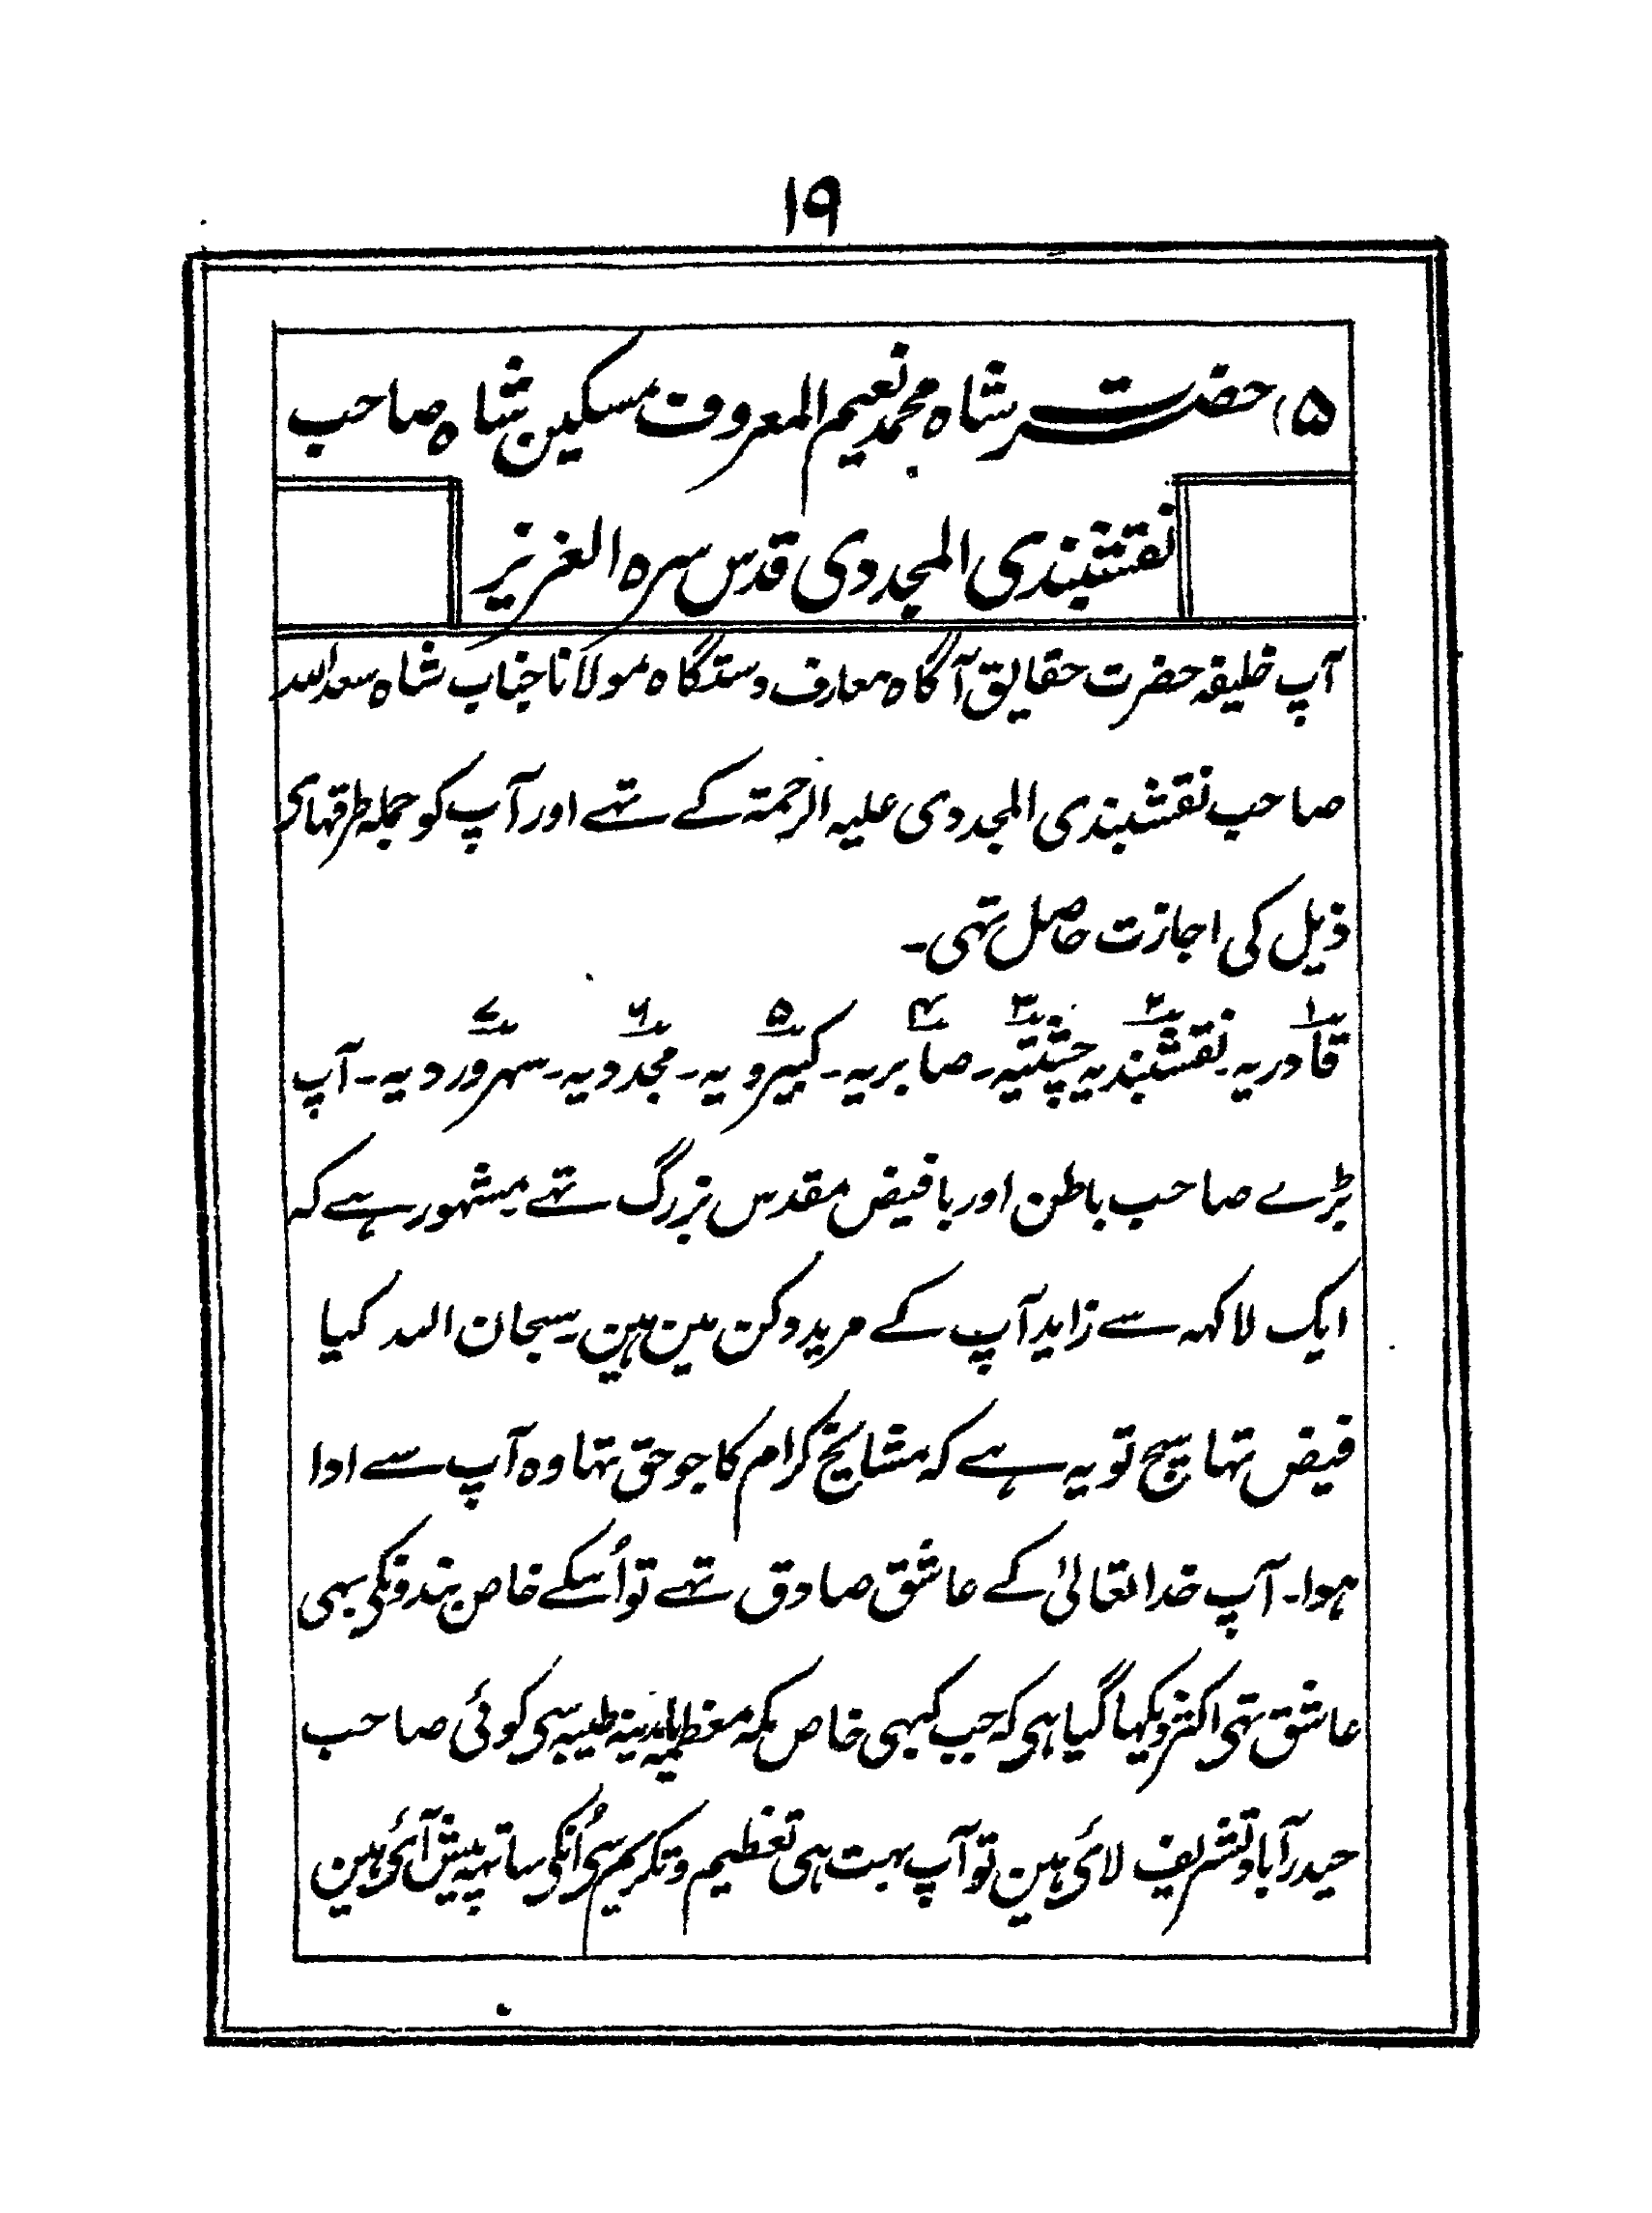 ۱۹
۵) حضرت شاہ محمد نعیم المعروف مسکین شاہ صاحب
نقشبندی المجددی قدس سرہ العزیز
آپ خلیفہ حضرت حقایق آگاہ معارف دستگاہ مولانا جناب شاہ سعد اللہ
صاحب نقشبندی المجددی علیہ الرحمۃ کے تہے اور آپ کو جملہ طرقہائے
ذیل کی اجازت حاصل تہی۔
۱ ۲ ۳ ۴ ۵ ۶ ۷
قادریہ۔ نقشبندیہ چشتیہ۔ صابریہ۔ کبیرویہ۔ مجددیہ۔ سہروردیہ۔ آپ
بڑے صاحب باطن اور بافیض مقدس بزرگ تہے۔ مشہور ہے کہ
ایک لاکہہ سے زاید آپ کے مرید دکن مین ہین۔ سبحان اللہ کیا
فیض تہا سچ تو یہ ہے کہ مشایخ کرام کا جو حق تہا وہ آپ سے ادا
ہوا۔ آپ خدا تعالیٰ کے عاشق صادق تہے تو اُسکے خاص بندونکی بہی
عاشق تہی اکثر دیکہا گیا ہی کہ جب کبہی خاص مکہ معظمہ یا مدینہ طیبہ سی کوئی صاحب
حیدرآباد تشریف لائی ہین تو آپ بہت ہی تعظیم و تکریم سی اُنکی ساتہہ پیش آئی ہین